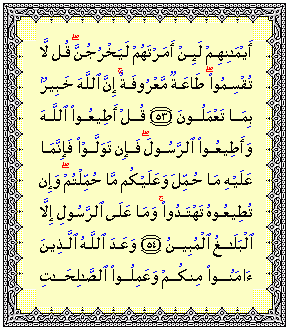 أَيْمَٰنِهِمْ لَئِنْ أَمَرْتَهُمْ لَيَخْرُجُنَّ ۖ قُل لَّا
تُقْسِمُوا۟ ۖ طَاعَةٌ مَّعْرُوفَةٌ ۚ إِنَّ ٱللَّهَ خَبِيرٌۢ
بِمَا تَعْمَلُونَ ﴿٥٣﴾ قُلْ أَطِيعُوا۟ ٱللَّهَ
وَأَطِيعُوا۟ ٱلرَّسُولَ ۖ فَإِن تَوَلَّوْا۟ فَإِنَّمَا
عَلَيْهِ مَا حُمِّلَ وَعَلَيْكُم مَّا حُمِّلْتُمْ ۖ وَإِن
تُطِيعُوهُ تَهْتَدُوا۟ ۚ وَمَا عَلَى ٱلرَّسُولِ إِلَّا
ٱلْبَلَٰغُ ٱلْمُبِينُ ﴿٥٤﴾ وَعَدَ ٱللَّهُ ٱلَّذِينَ
ءَامَنُوا۟ مِنكُمْ وَعَمِلُوا۟ ٱلصَّٰلِحَٰتِ